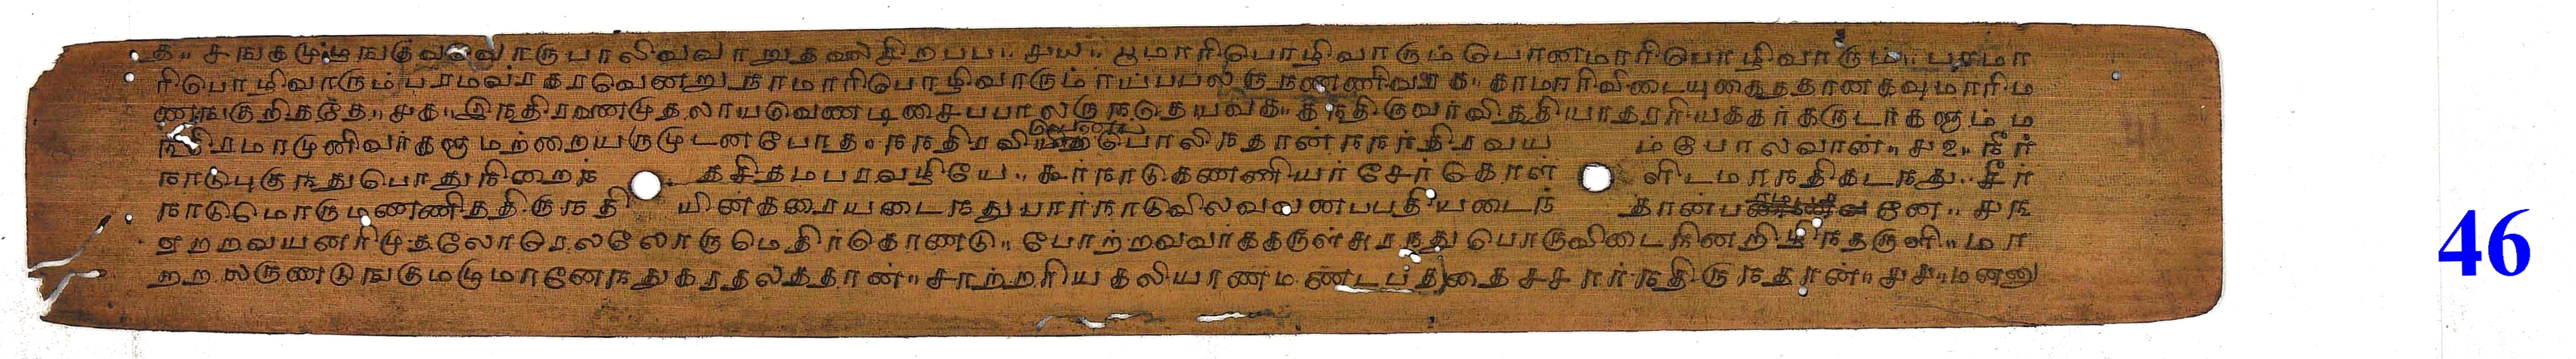 த॥ சஙகமுமஙகுவவொருபாலிவவாறுதணசிறபப॥ சய॥ பூமாரிபொழிவாரும் பொனமாரிபொழிவாரும॥ பாமா
ரிபொழிவாரும்பரமவரகரவெனறு நாமாரிபொழிவாரும் நணணிவரக॥ காமாரிவிடையுகைததானகவுமாரிம
ணஙகுறிதததே॥ சக॥ இநதிரவணமுதலாயவெணடிசைபபாலருநதெயவக॥ கநதிருவர்விததியாதரரியககர்கருடர்களும் ம
நதிரமாமுனிவர்களுமற்றையருமுடனபோத॥ நநதிரவி பொலிநதான் நநர்திரவய ம்போலவான்॥ சஉ॥ நீர்
நாடுபுகுநதுபொதுநிறைந் தசிதமபரவழியே॥ கூர்நாடுகணணியர் சேர்கொள் ளிடமாநதிகடநது॥ சீர்
நாடுமொருமணணிததிருநதி யினகரையடைநதுபார்நாடுவிலவவணபபதியடைந் தான்ப னே॥ சந
ஏறறவயனர்முதலோரெலலோருமெதிர்கொணடு॥ போற்றவவர்ககருள்சுரநதுபொருவிடைநினறிழிநதருளி॥ மா
றறலருணடுஙகுமடுமானேநதுகரதலததான்॥ சாற்றரியகலியாணமணடபததைசசார்நதிருநதான॥ சச॥ மனனு